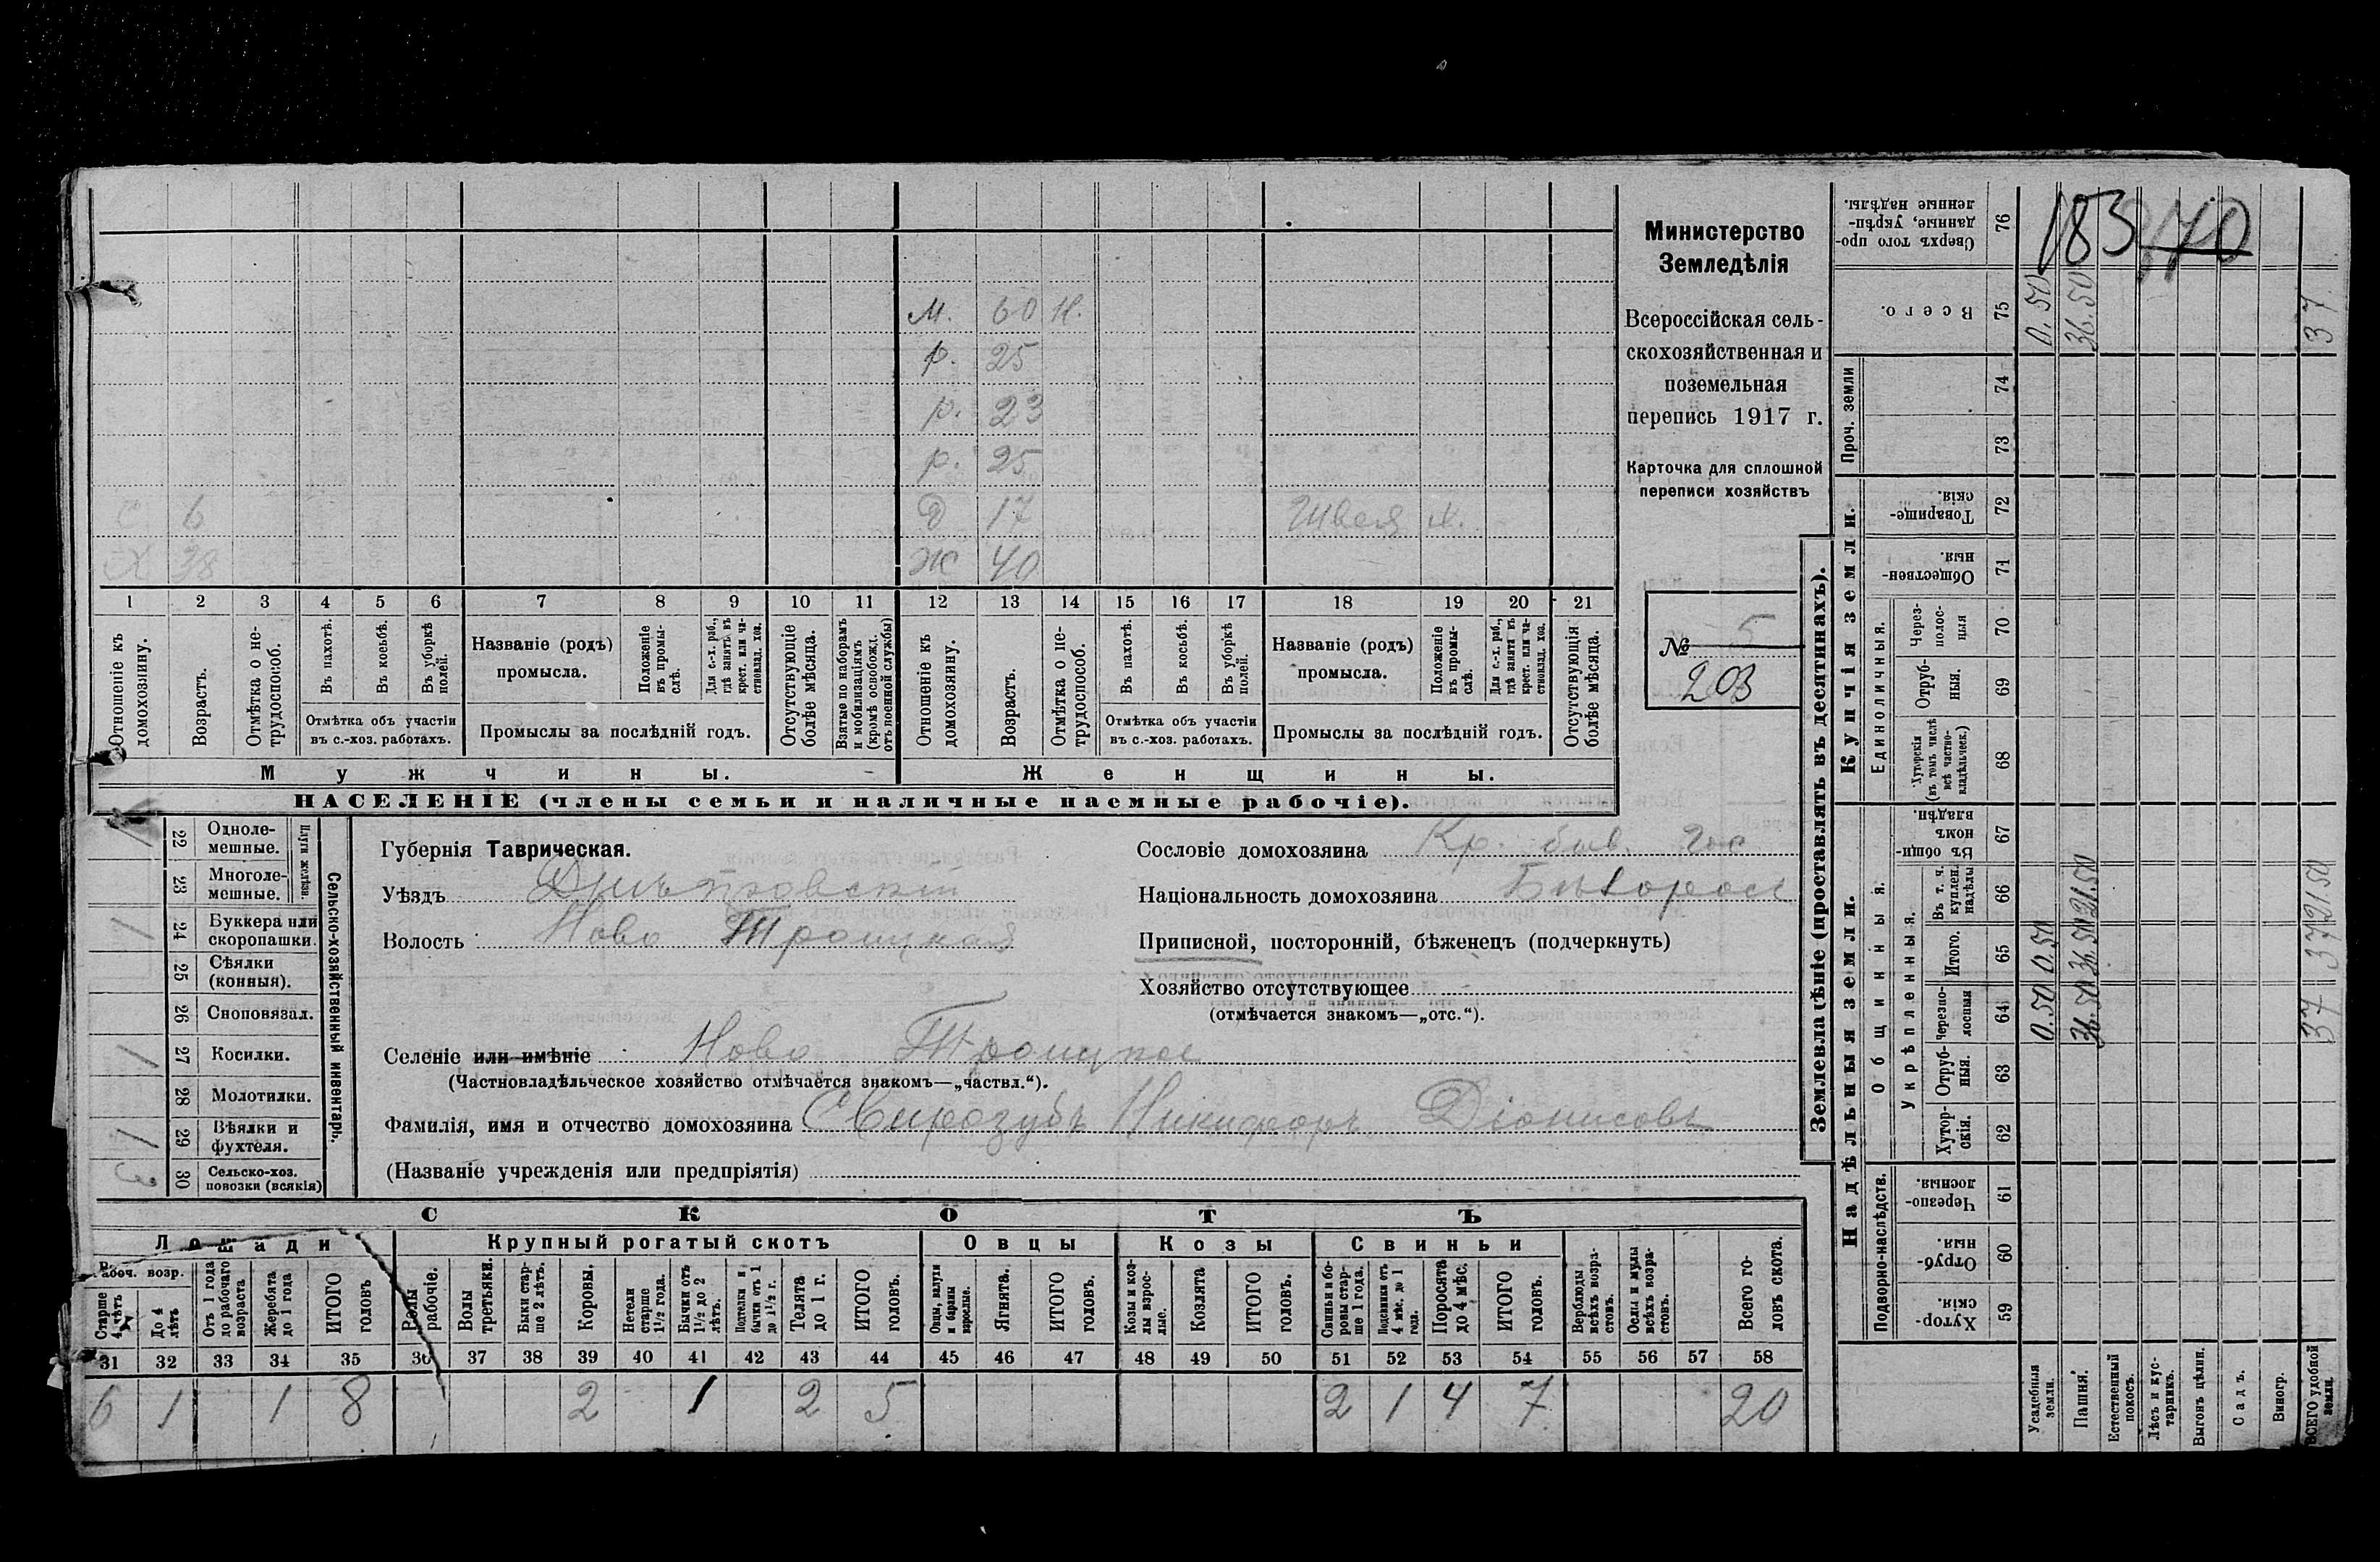 М. 60 Н.
р. 25
р. 23
р. 25
С 6 Д 17 Швея х.
Х 38 Ж 40
1 2 3 4 5 6 7 8 9 10 11 12 13 14 15 16 17 18 19 20 21
Отношеніе къ домохозяину.
Возрастъ.
Отмѣтка о не-трудоспособ.
Въ пахотѣ.
Въ косьбѣ.
Въ уборкѣ полей.
Отмѣтка объ участіи въ с.-хоз. работахъ.
Названіе (родъ) промысла.
Положеніе въ промы-слѣ.
Для с.-х. раб., гдѣ занятъ въ крест. или ча-стновлад. хоз.
Промыслы за послѣдній годъ.
Отсутствующіе болѣе мѣсяца.
Взятые по наборамъ и мобилизаціямъ (кромѣ освобожд. отъ военной службы)
Отношеніе къ домохозяину.
Возрастъ.
Отмѣтка о не-трудоспособ.
Въ пахотѣ.
Въ косьбѣ.
Въ уборкѣ полей.
Отмѣтка объ участіи въ с.-хоз. работахъ.
Названіе (родъ) промысла.
Положеніе въ промы-слѣ.
Для с.-х. раб., гдѣ занята въ крест. или ча-стновлад. хоз.
Промыслы за послѣдній годъ.
Отсутствующія болѣе мѣсяца.
Мужчины. Женщины.
НАСЕЛЕНІЕ (члены семьи и наличные наемные рабочіе).
Министерство
Земледѣлія
Всероссійская сель-
скохозяйственная и
поземельная
перепись 1917 г.
Карточка для сплошной
переписи хозяйствъ
№ 5
203
Сельско-хозяйственный инвентарь.
Плуги желѣзн.
22 Одноле-мешные. 1
23 Многоле-мешные.
24 Буккера или скоропашки. 1
25 Сѣялки (конныя).
26 Сноповязал.
27 Косилки. 1
28 Молотилки.
29 Вѣялки и фухтеля. 1
30 Сельско-хоз. повозки (всякія) 3
Губернія Таврическая.
Уѣздъ Днѣпровскій
Волость Ново Троицкая
Сословіе домохозяина Кр. быв. гос
Національность домохозяина Бѣлорос
Приписной, посторонній, бѣженецъ (подчеркнуть)
Хозяйство отсутствующее
(отмѣчается знакомъ—„отс.“).
Селеніе или имѣніе Ново Троицкое
(Частновладѣльческое хозяйство отмѣчается знакомъ—„частвл.“).
Фамилія, имя и отчество домохозяина Свирозубъ Никифоръ Діонисовъ
(Названіе учрежденія или предпріятія)
СКОТЪ
Лошади Крупный рогатый скотъ Овцы Козы Свиньи
Рабоч. возр.
Старше 4 лѣтъ
До 4 лѣтъ
Отъ 1 года до рабочаго возраста
Жеребята до 1 года
ИТОГО головъ
Волы рабочіе.
Волы третьяки.
Быки стар-ше 2 лѣтъ.
Коровы.
Нетели старше 1½ года.
Бычки отъ 1½ до 2 лѣтъ.
Подтелки и бычки отъ 1 до 1½ г.
Телята до 1 г.
ИТОГО головъ.
Овцы, валухи и бараны взрослые.
Ягнята.
ИТОГО головъ.
Козы и коз-лы взрос-лые.
Козлята
ИТОГО головъ.
Свиньи и бо-ровы стар-ше 1 года.
Подсвинки отъ 4 мѣс. до 1 года.
Поросята до 4 мѣс.
ИТОГО головъ.
Верблюды всѣхъ возра-стовъ.
Ослы и мулы всѣхъ возра-стовъ.
Всего го-ловъ скота.
31 32 33 34 35 36 37 38 39 40 41 42 43 44 45 46 47 48 49 50 51 52 53 54 55 56 57 58
6 1 1 8 2 1 2 5 2 1 4 7 20
Землевладѣніе (проставлять въ десятинахъ).
Надѣльныя земли. Купчія земли. Проч. земли
Подворно-наслѣдств.
Общинныя.
Укрѣпленныя.
Единоличныя.
59 Хутор-скія.
60 Отруб-ныя.
61 Черезпо-лосныя
62 Хутор-скія.
63 Отруб-ныя.
64 Черезпо-лосныя
65 Итого.
66 Въ т. ч. куплен. надѣлы
67 Въ общин-номъ владѣн.
68 Хуторскія (въ томъ числѣ всѣ частно-владѣльческ.)
69 Отруб-ныя.
70 Через-полос-ныя
71 Обществен-ныя.
72 Товарище-скія.
73
74
75 Всего.
76 Сверхъ того про-данные, укрѣп-ленные надѣлы.
Усадебныя земли. 0.50 0.50 0.50
Пашня. 36.50 36.50 21.50 36.50
Естественный покосъ.
Лѣсъ и кус-тарникъ.
Выгонъ цѣлин.
Садъ.
Виногр.
ВСЕГО удобной земли. 37 37 21.50 37
183 170